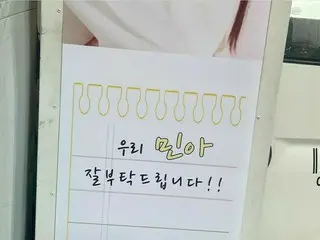 우리 민아
잘부탁드립니다!!